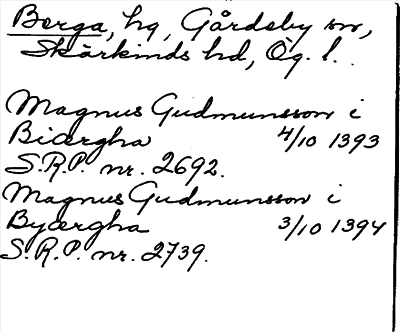 Berga, hg, Gårdeby sn,
Skärkinds hd, Ög. l.
Magnus Gudmunsson i
Biærgha 4/10 1393
S.R.P. nr. 2692.
Magnus Gudmunsson i
Byærgha 3/10 1394
S.R.P. nr. 2739.